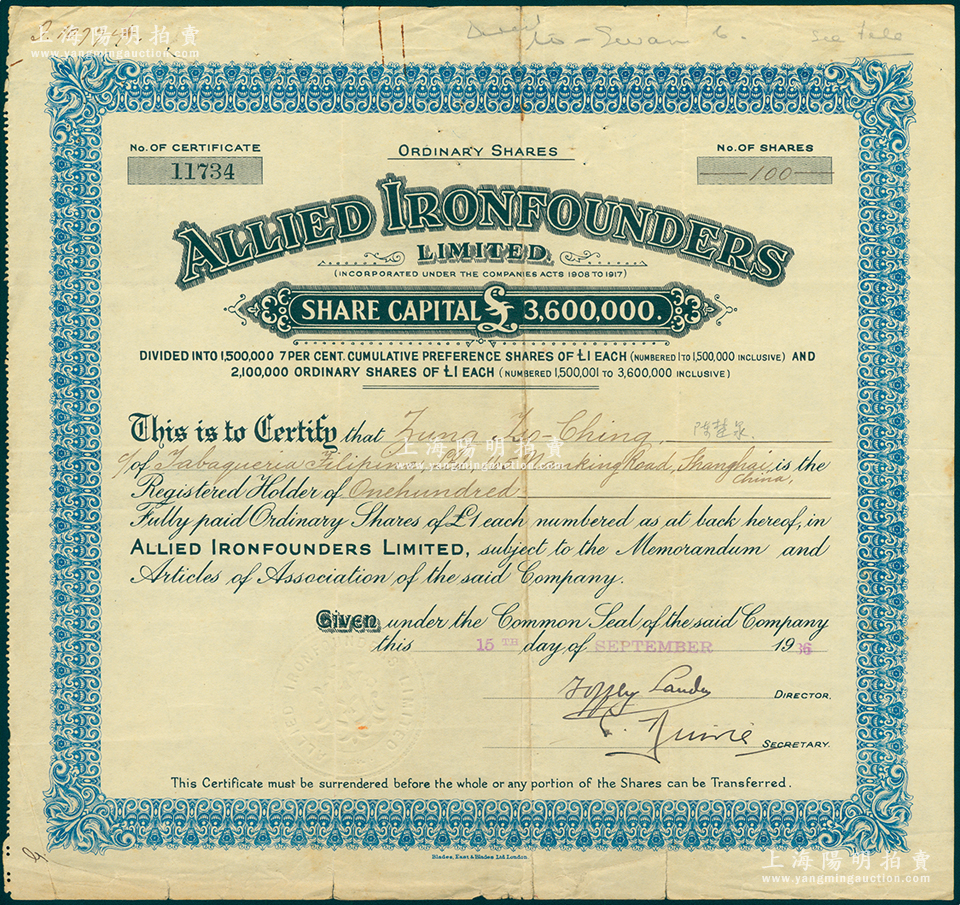 上海陽明拍賣
www.yangmingauction.com
see
No. OF CERTIFICATE
ORDINARY SHARES
No. OF SHARES
11734
100
ALLIED IRONFOUNDERS
LIMITED.
(INCORPORATED UNDER THE COMPANIES ACTS 1908 TO 1917)
SHARE CAPITAL £ 3,600,000.
DIVIDED INTO 1,500,000 7 PER CENT. CUMULATIVE PREFERENCE SHARES OF £1 EACH (NUMBERED 1 TO 1,500,000 INCLUSIVE) AND
2,100,000 ORDINARY SHARES OF £1 EACH (NUMBERED 1,500,001 TO 3,600,000 INCLUSIVE)
This is to Certify that Zung Ching
上海陽明拍賣
c/o of Tabaqueria Filipina Nanking Road, Shanghai, is the
www.yangmingauction.com
China,
Registered Holder of One hundred
Fully paid Ordinary Shares of £1 each numbered as at back hereof, in
ALLIED IRONFOUNDERS LIMITED, subject to the Memorandum and
Articles of Association of the said Company.
Given under the Common Seal of the said Company
this 15TH day of SEPTEMBER 1936
ALLIED IRONFOUNDERS LIMITED
DIRECTOR.
SECRETARY.
This Certificate must be surrendered before the whole or any portion of the Shares can be Transferred.
Blades, East & Blades Ltd. London.
上海陽明拍賣
www.yangmingauction.com